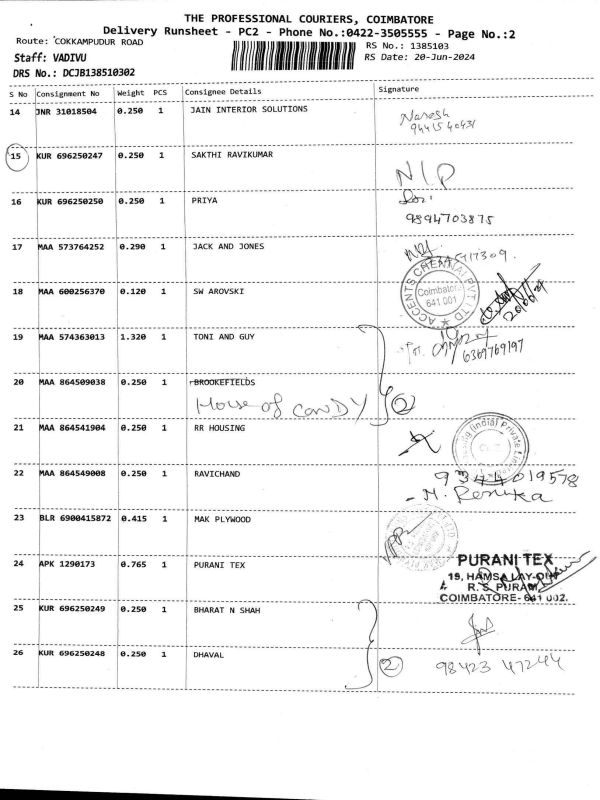 THE PROFESSIONAL COURIERS, COIMBATORE
Delivery Runsheet - PC2 - Phone No.:0422-3505555 - Page No.:2
Route: COKKAMPUDUR ROAD
RS No.: 1385103
Staff: VADIVU
RS Date: 20-Jun-2024
DRS No.: DCJB138510302
S No Consignment No Weight PCS Consignee Details Signature
14 JNR 31018504 0.250 1 JAIN INTERIOR SOLUTIONS Naresh
9441540431
15 KUR 696250247 0.250 1 SAKTHI RAVIKUMAR
N/P
16 KUR 696250250 0.250 1 PRIYA
9894703875
17 MAA 573764252 0.290 1 JACK AND JONES
18 MAA 600256370 0.120 1 SW AROVSKI
ACCENTS CHENNAI PVT LTD
Coimbatore
641 001
19 MAA 574363013 1.320 1 TONI AND GUY
6369769197
20 MAA 864509038 0.250 1 BROOKEFIELDS
House of CANDY 2
21 MAA 864541904 0.250 1 RR HOUSING
(India) Private Limited
22 MAA 864549008 0.250 1 RAVICHAND 9344019578
- M. Renuka
23 BLR 6900415872 0.415 1 MAK PLYWOOD
24 APK 1290173 0.765 1 PURANI TEX PURANI TEX
19, HAMSA LAY-OUT
R. S. PURAM
COIMBATORE- 641 002.
25 KUR 696250249 0.250 1 BHARAT N SHAH
26 KUR 696250248 0.250 1 DHAVAL 2 98423 47244